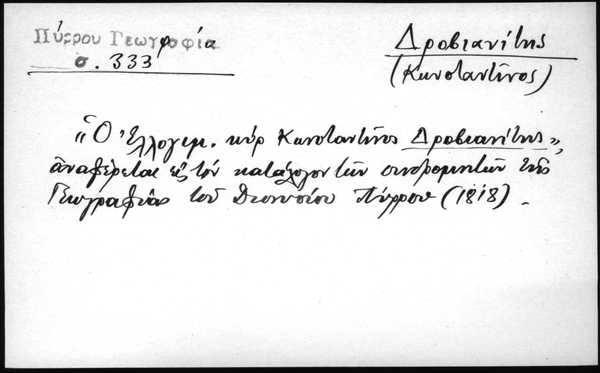 Πύρρου Γεωγραφία
σ. 333
Δροβιανίτης
(Κωνσταντῖνος)
«Ὁ Ἐλλογιμ. κύρ Κωνσταντῖνος Δροβιανίτης»,
ἀναφέρεται εἰς τόν κατάλογον τῶν συνδρομητῶν τῆς
Γεωγραφίας τοῦ Διονυσίου Πύρρου (1818).